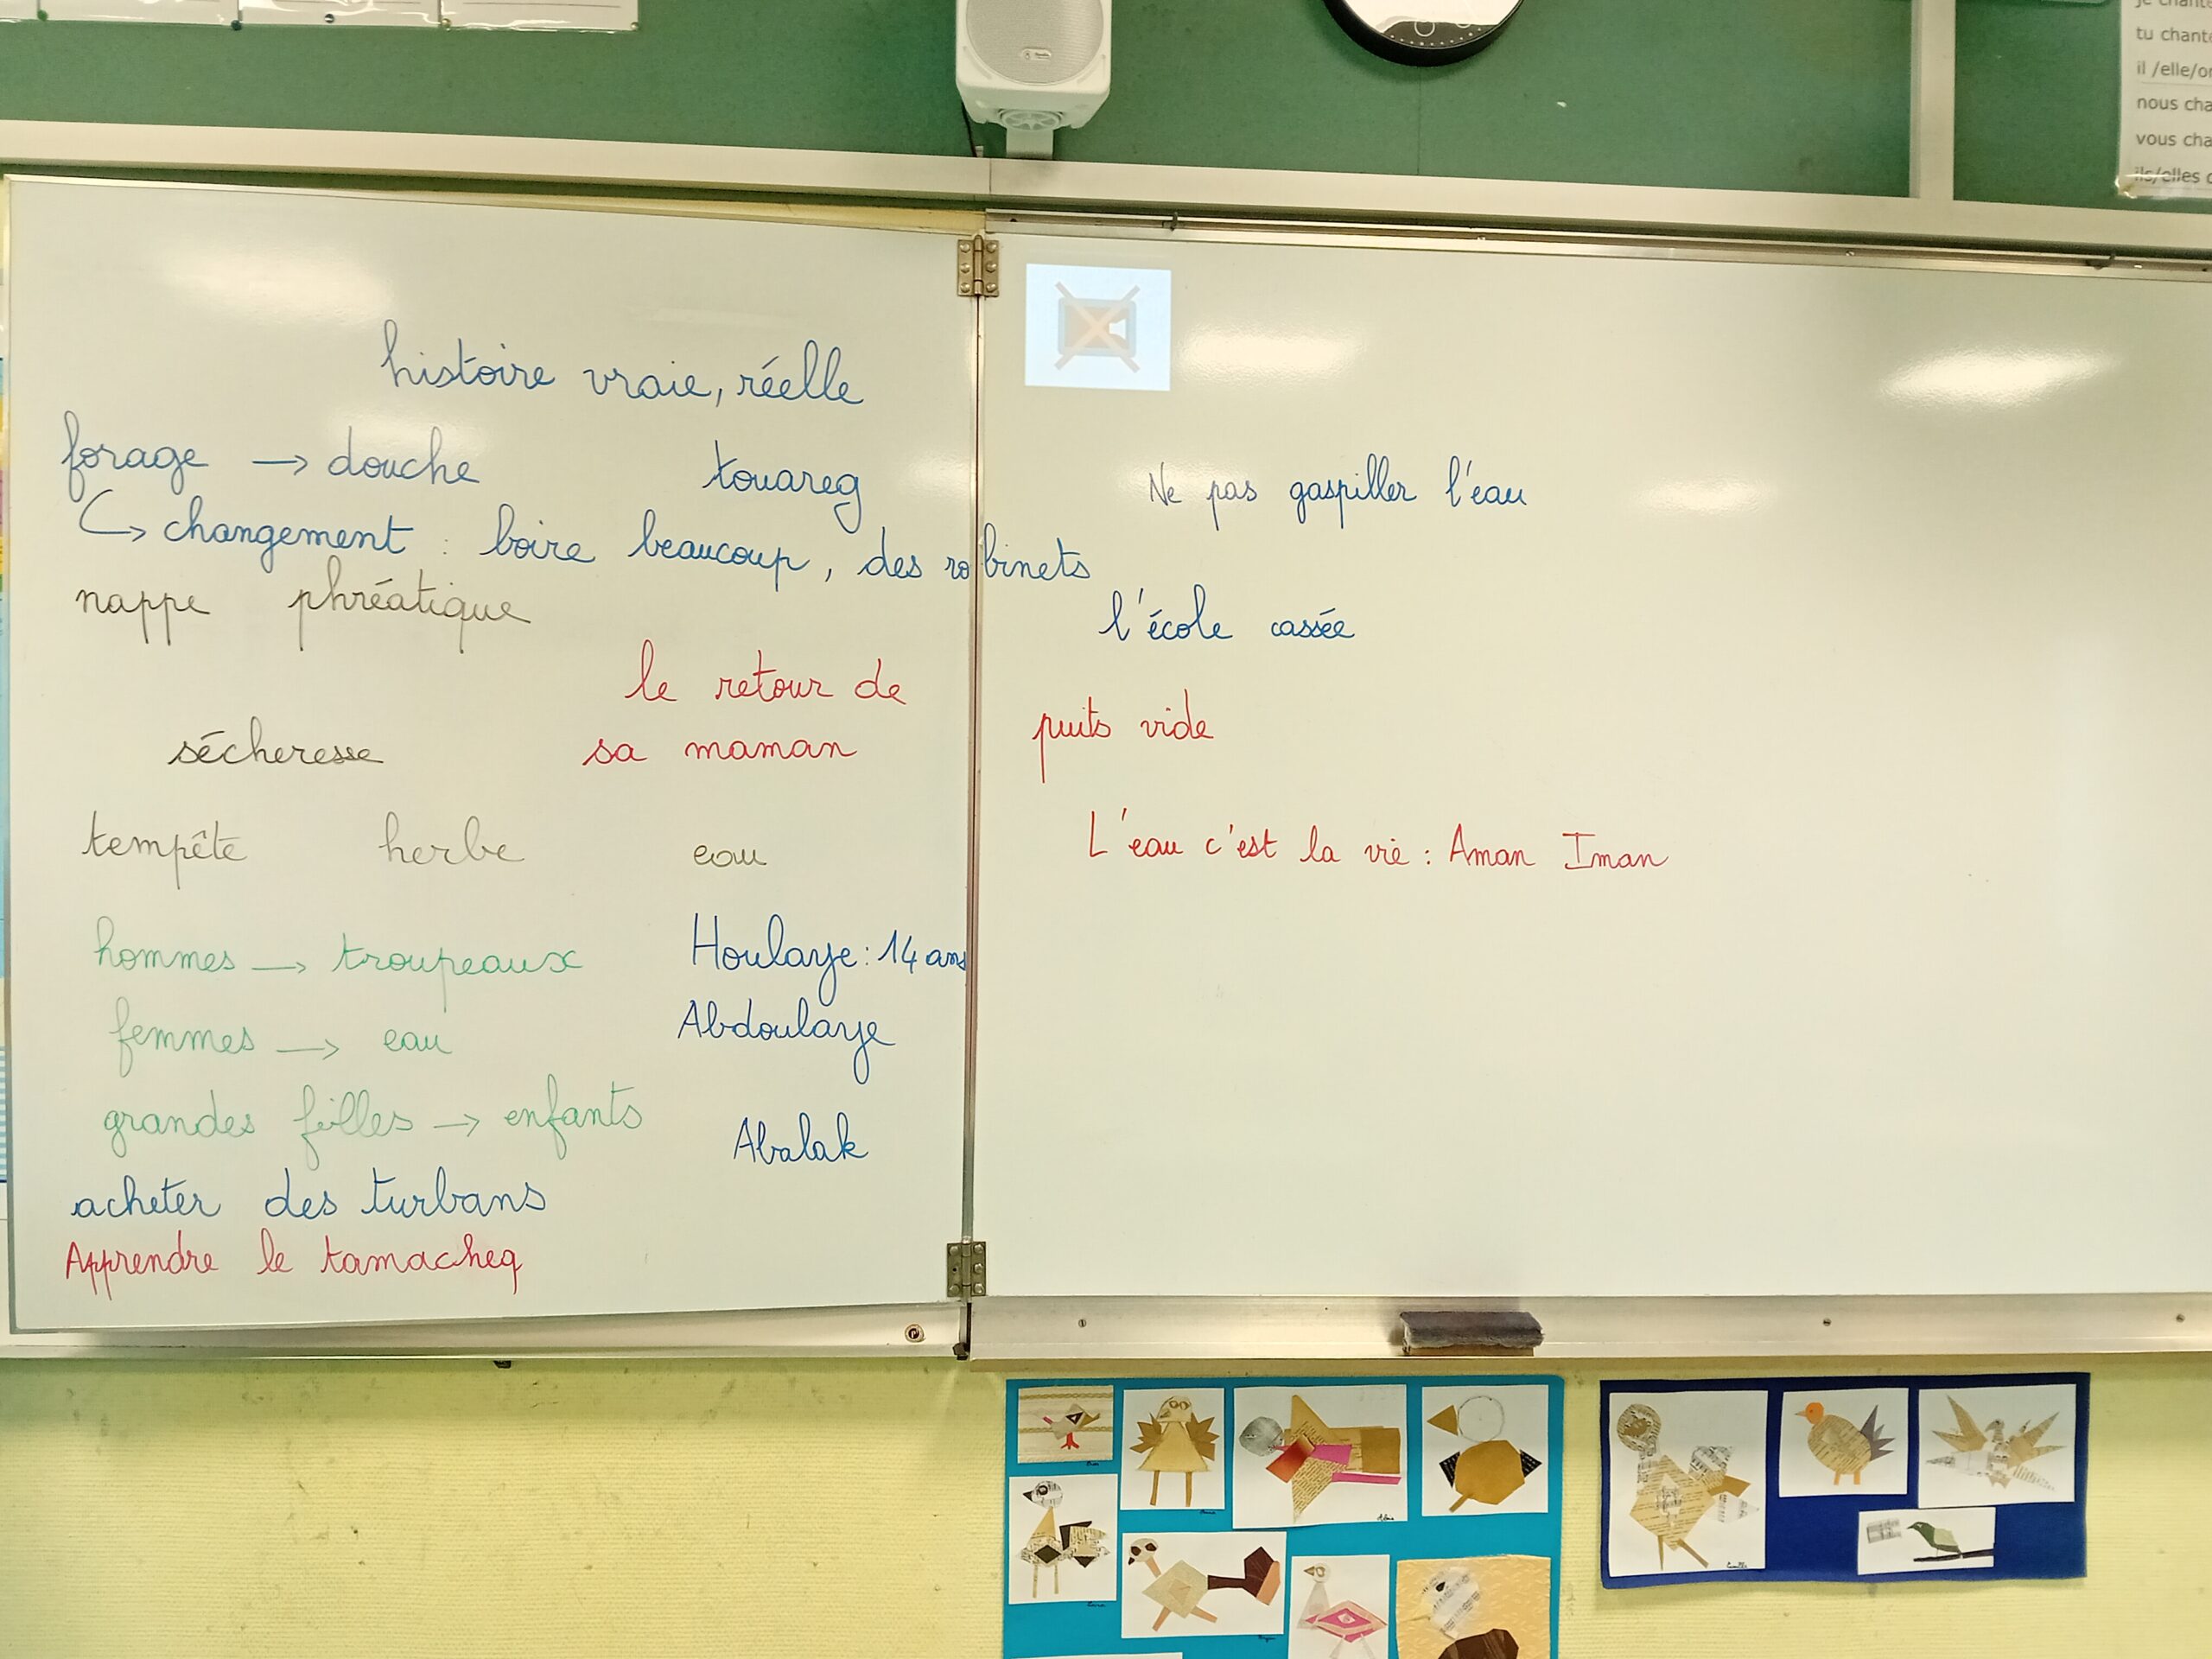 je chante
tu chante
il /elle/on
nous cha
vous cha
ils/elles c
histoire vraie, réelle
forage → douche
touareg
↳ changement : boire beaucoup, des robinets
nappe phréatique
le retour de
sa maman
sécheresse
tempête herbe eau
hommes → troupeaux
femmes → eau
grandes filles → enfants
Houlaye : 14 ans
Abdoulaye
Abalak
acheter des turbans
Apprendre le tamacheq
Ne pas gaspiller l'eau
l'école cassée
puits vide
L'eau c'est la vie : Aman Iman